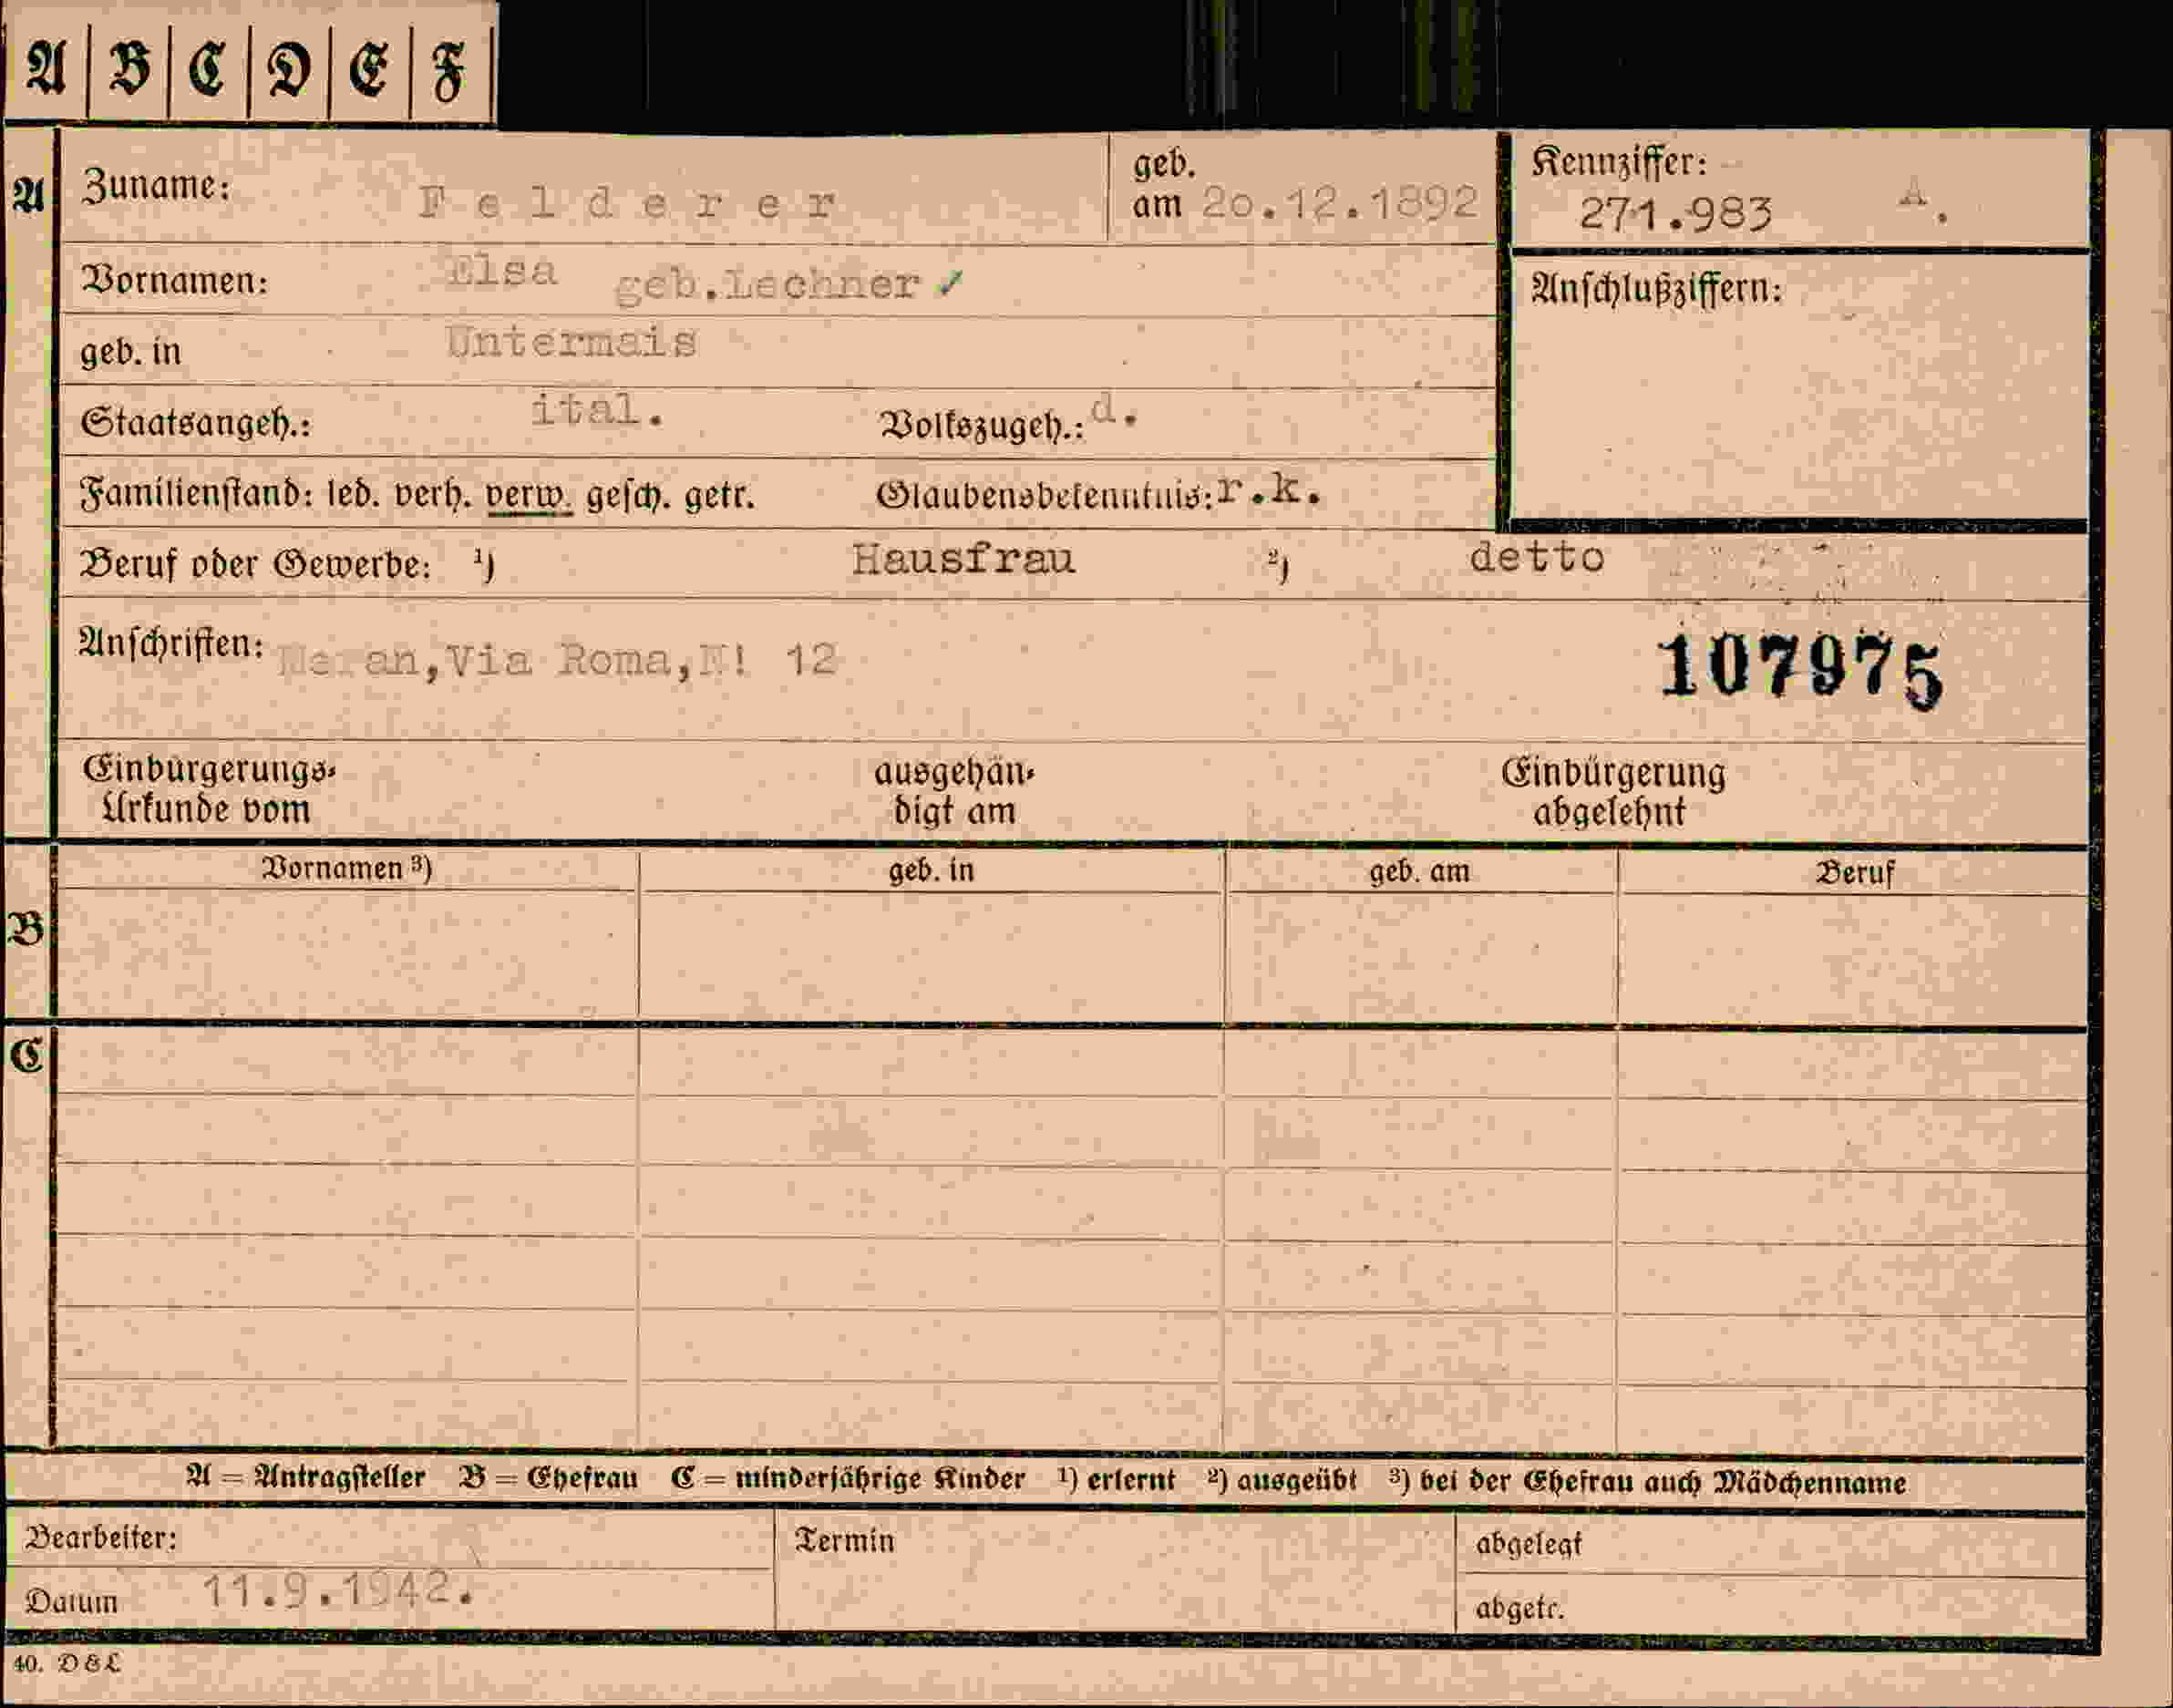 A B C D E F
A Zuname: Felderer geb. am 20.12.1892 Kennziffer: 271.983 A.
Vornamen: Elsa geb.Lechner ✓ Anschlußziffern:
geb. in Untermais
Staatsangeh.: ital. Volkszugeh.: d.
Familienstand: led. verh. verw. gesch. getr. Glaubensbekenntnis: r.k.
Beruf oder Gewerbe: ¹) Hausfrau ²) detto
Anschriften: Meran,Via Roma,N! 12 107975
Einbürgerungs- ausgehän- Einbürgerung
Urkunde vom digt am abgelehnt
Vornamen ³) geb. in geb. am Beruf
B
C
A = Antragsteller B = Ehefrau C = minderjährige Kinder ¹) erlernt ²) ausgeübt ³) bei der Ehefrau auch Mädchenname
Bearbeiter: Termin abgelegt
Datum 11.9.1942. abgetr.
40. D & L